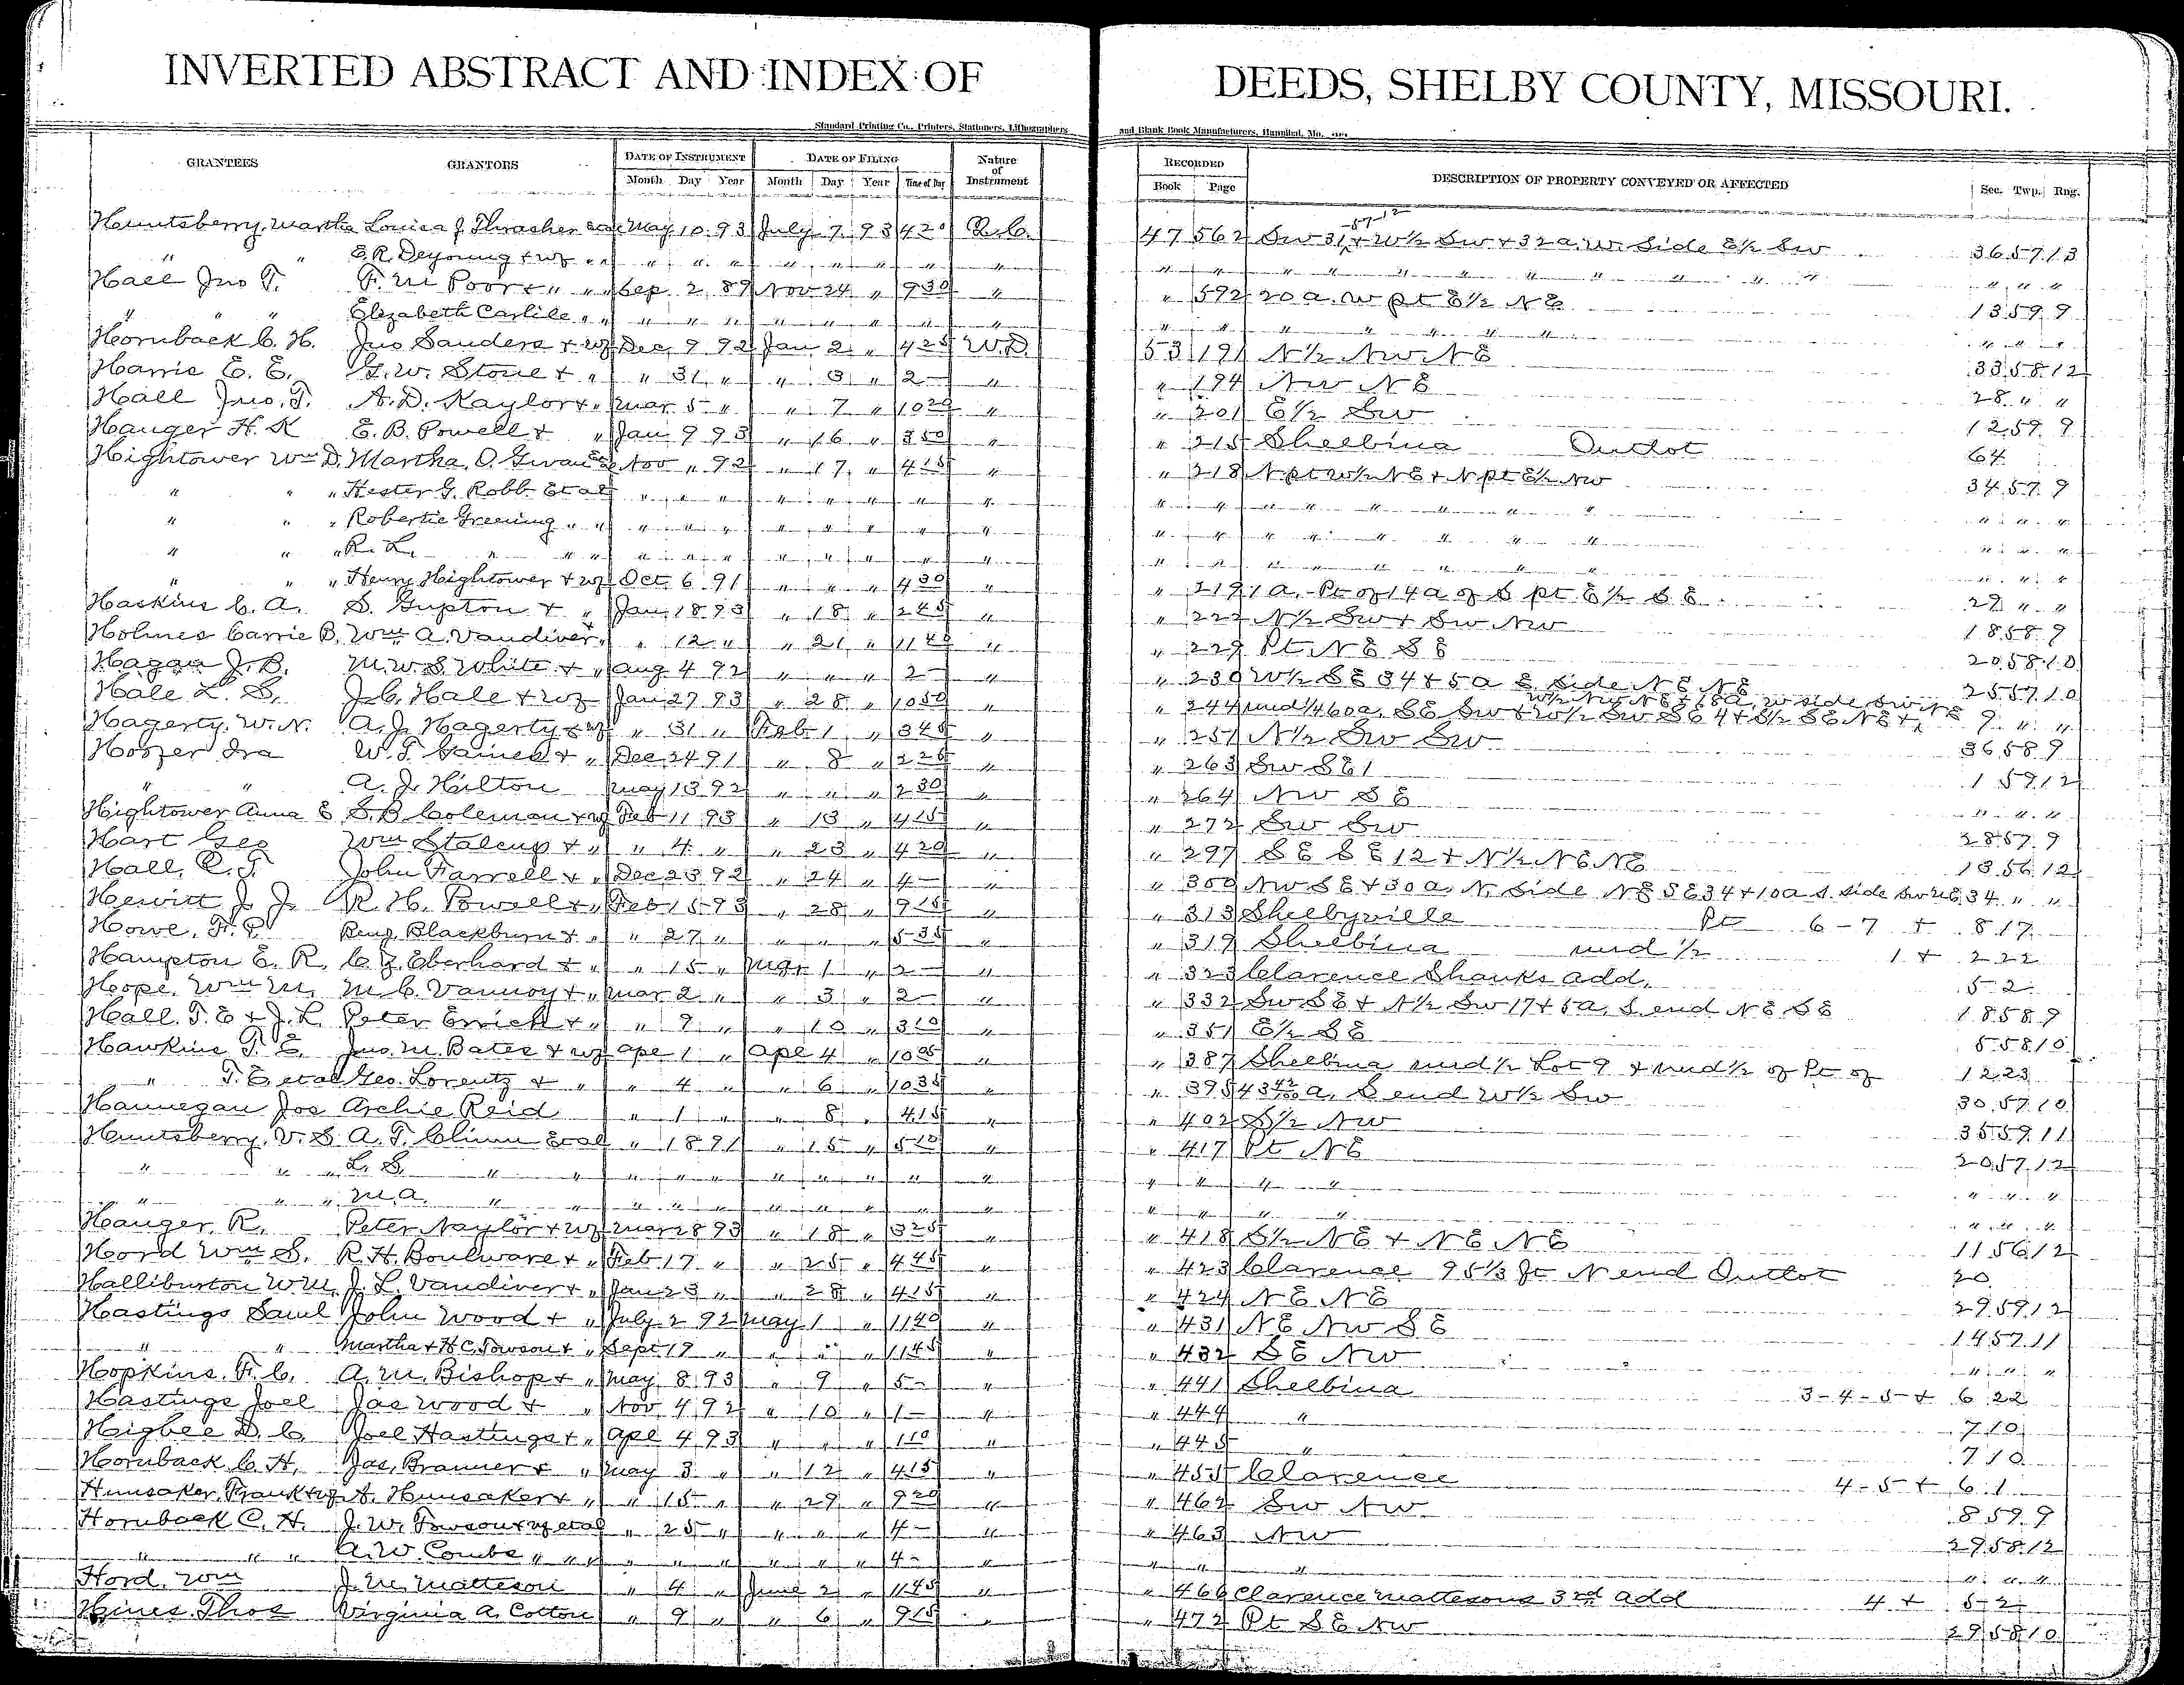 INVERTED ABSTRACT AND INDEX OF DEEDS, SHELBY COUNTY, MISSOURI.
Standard Printing Co., Printers, Stationers, Lithographers and Blank Book Manufacturers, Hannibal, Mo.
GRANTEES GRANTORS DATE OF INSTRUMENT DATE OF FILING Nature of Instrument RECORDED DESCRIPTION OF PROPERTY CONVEYED OR AFFECTED Sec. Twp. Rng.
Month Day Year Month Day Year Time of Day Book Page
Huntsberry, Martha Louisa J. Thrasher May 10 93 July 7 93 420 Q.C. 47 562 Sw 31 57-12 + W½ Sw + 32 a. W. Side E½ Sw 36 57 13
" " E. R. Deyoung + wf " " " " " " " " " " " " " " "
Hall Jno T. F. M. Poor + " " Sep. 2 89 Nov 24 " 930 " " 592 20 a. W pt E½ NE 13 59 9
" " " Elizabeth Carlile " " " " " " " " " " " " " " " " "
Hornback C. H. Jno Sanders + wf Dec 9 92 Jan 2 " 425 W.D. 53 191 N½ NW NE 33 58 12
Harris E. E. G. W. Stone + " " 31 " " 3 " 2- " " 194 NW NE 28 " "
Hall Jno. T. A. D. Naylor + " Mar 5 " " 7 " 1020 " " 201 E½ Sw 12 59 9
Hanger H. K E. B. Powell + " Jan 9 93 " 16 " 350 " " 215 Shelbina Outlot 64
Hightower Wm D. Martha. O. Nov " 92 " 17 " 415 " " 218 N pt W½ NE + N pt E½ NW 34 57 9
" " " Hester G. Robb. Et al " " " " " " " " " " " " " "
" " " Robertie Greening " " " " " " " " " " " " " " " "
" " " R. L. " " " " " " " " " " " " " " "
" " " Henry Hightower + wf Oct 6 91 " " " 430 " " 219 1 a. Pt of 14 a of S pt E½ SE 27 " "
Haskins C. A. S. Gupton + " Jan 18 93 " 18 " 245 " " 222 N½ Sw + Sw NW 18 58 9
Holmes Carrie B. Wm A. Vandiver " " 12 " " 21 " 1140 " " 229 Pt NE SE 20 58 10
Hagan J. B. M. W. S. White + " Aug 4 92 " " " 2- " " 230 W½ SE 34 + 5 a E Side NE NE 25 57 10
Hale L. S. J. C. Hale + wf Jan 27 93 " 28 " 1050 " " 244 und ¼ 60 a. SE Sw + W½ Sw SE 4 + S½ SE NE + W½ NW NE + 18 a. W side Sw NE 9 " "
Hagerty, W. N. A. J. Hagerty + wf " 31 " Feb 1 " 345 " " 251 N½ Sw Sw 36 58 9
Hoozer Ira W. T. Gaines + " Dec 24 91 " 8 " 225 " " 263 Sw SE 1 1 59 12
" " A. J. Hilton May 13 92 " " " 230 " " 264 NW SE " " "
Hightower Anna E S. B. Coleman + wf Feb 11 93 " 13 " 415 " " 272 Sw Sw 28 57 9
Hart Geo Wm Stalcup + " " 4 " " 23 " 420 " " 297 SE SE 12 + N½ NE NE 13 56 12
Hall, C. T. John Farrell + " Dec 23 92 " 24 " 4- " " 300 NW SE + 30 a. N. Side NE SE 34 + 10 a S. side Sw NE 34 " "
Hewitt J. J. R. H. Powell + " Feb 15 93 " 28 " 915 " " 313 Shelbyville Pt 6-7 + 8 17
Howe, F. P. Benj. Blackburn + " " 27 " " " " 535 " " 319 Shelbina und ½ 1 + 2 22
Hampton E. R. C. J. Eberhard + " " 15 " Mar 1 " 2- " " 323 Clarence Shanks Add. 5 2
Hope, Wm M. M. C. Vannoy + " Mar 2 " " 3 " 2- " " 332 Sw SE + N½ Sw 17 + 5 a. S. end NE SE 18 58 9
Hall. T. E + J. L. Peter Emrick + " " 9 " " 10 " 310 " " 351 E½ SE 5 58 10
Hawkins T. E. Jno. M. Bates + wf Apl 1 " Apl 4 " 1005 " " 387 Shelbina und ½ Lot 9 + und ½ of Pt of 12 23
" T. E. et al Geo. Lorentz + " " 4 " " 6 " 1035 " " 395 43 a. S end W½ Sw 30 57 10
Hannegan Jos Archie Reid " 1 " " 8 " 415 " " 402 S½ NW 35 59 11
Huntsberry, V. S A. T. Clinn Et al " 18 91 " 15 " 510 " " 417 Pt NE 20 57 12
" " " L. S. " " " " " " " " " " " " " " " "
" " " M. A. " " " " " " " " " " " " " "
Hanger, R. Peter Naylor + wf Mar 28 93 " 18 " 325 " " 418 S½ NE + NE NE 11 56 12
Hord Wm S. R. H. Boulware + " Feb 17 " " 25 " 445 " " 423 Clarence 95⅓ ft N end Outlot 20
Halliburton Wm. J. L. Vandiver + " Jan 23 " " 28 " 415 " " 424 NE NE 29 59 12
Hastings Saml John Wood + " July 2 92 May 1 " 1140 " " 431 NE NW SE 14 57 11
" " Martha + H C Towson + " Sept 19 " " " " 1145 " " 432 SE NW " " "
Hopkins, F. C. A. M. Bishop + " May 8 93 " 9 " 5- " " 441 Shelbina 3-4-5 + 6 22
Hastings Joel Jas Wood + " Nov 4 92 " 10 " 1- " " 444 " 7 10
Higbee D. C. Joel Hastings + " Apl 4 93 " " " 110 " " 445 " 7 10
Hornback C. H. Jas. Branner + " May 3 " " 12 " 415 " " 455 Clarence 4-5 + 6 1
Hunsaker, Frank + wf A. Hunsaker + " " 15 " " 29 " 920 " " 462 Sw NW 8 59 9
Hornback C. H. J. W. Towson + wf et al " 25 " " " " 4- " " 463 NW 29 58 12
" " " A. W. Combs " " " " " " " " " 4- " " " " " " "
Hord, Wm J. M. Matteson " 4 " June 2 " 1145 " " 466 Clarence Mattesons 3rd Add 4 + 5 2
Hines Thos Virginia A. Cotton " 9 " " 6 " 915 " " 472 Pt SE NW 29 58 10